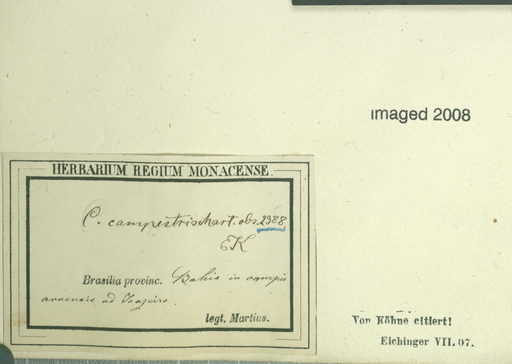 imaged 2008
HERBARIUM REGIUM MONACENSE.
C. campestris Mart. obs. 2388
EK
Brasilia provinc. Bahia in campis
ad
legt. Martius.
Von Köhne citiert!
Eichinger VII. 07.